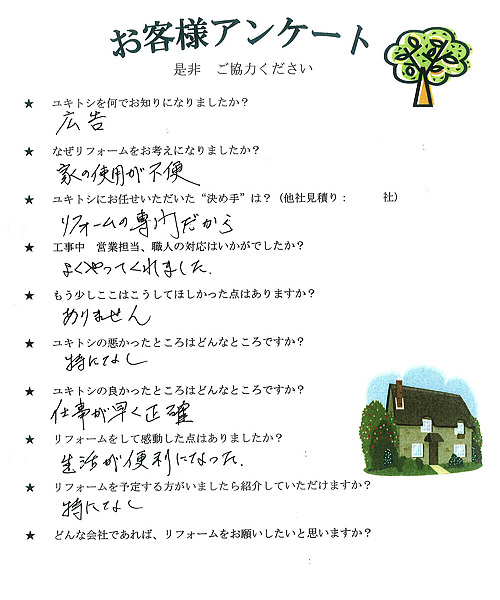 お客様アンケート
是非　ご協力ください
★　ユキトシを何でお知りになりましたか？
広告
★　なぜリフォームをお考えになりましたか？
家の使用が不便
★　ユキトシにお任せいただいた“決め手”は？（他社見積り：　　　社）
リフォームの専門だから
★　工事中　営業担当、職人の対応はいかがでしたか？
よくやってくれました.
★　もう少しここはこうしてほしかった点はありますか？
ありません
★　ユキトシの悪かったところはどんなところですか？
特になし
★　ユキトシの良かったところはどんなところですか？
仕事が早く正確
★　リフォームをして感動した点はありましたか？
生活が便利になった.
★　リフォームを予定する方がいましたら紹介していただけますか？
特になし
★　どんな会社であれば、リフォームをお願いしたいと思いますか？